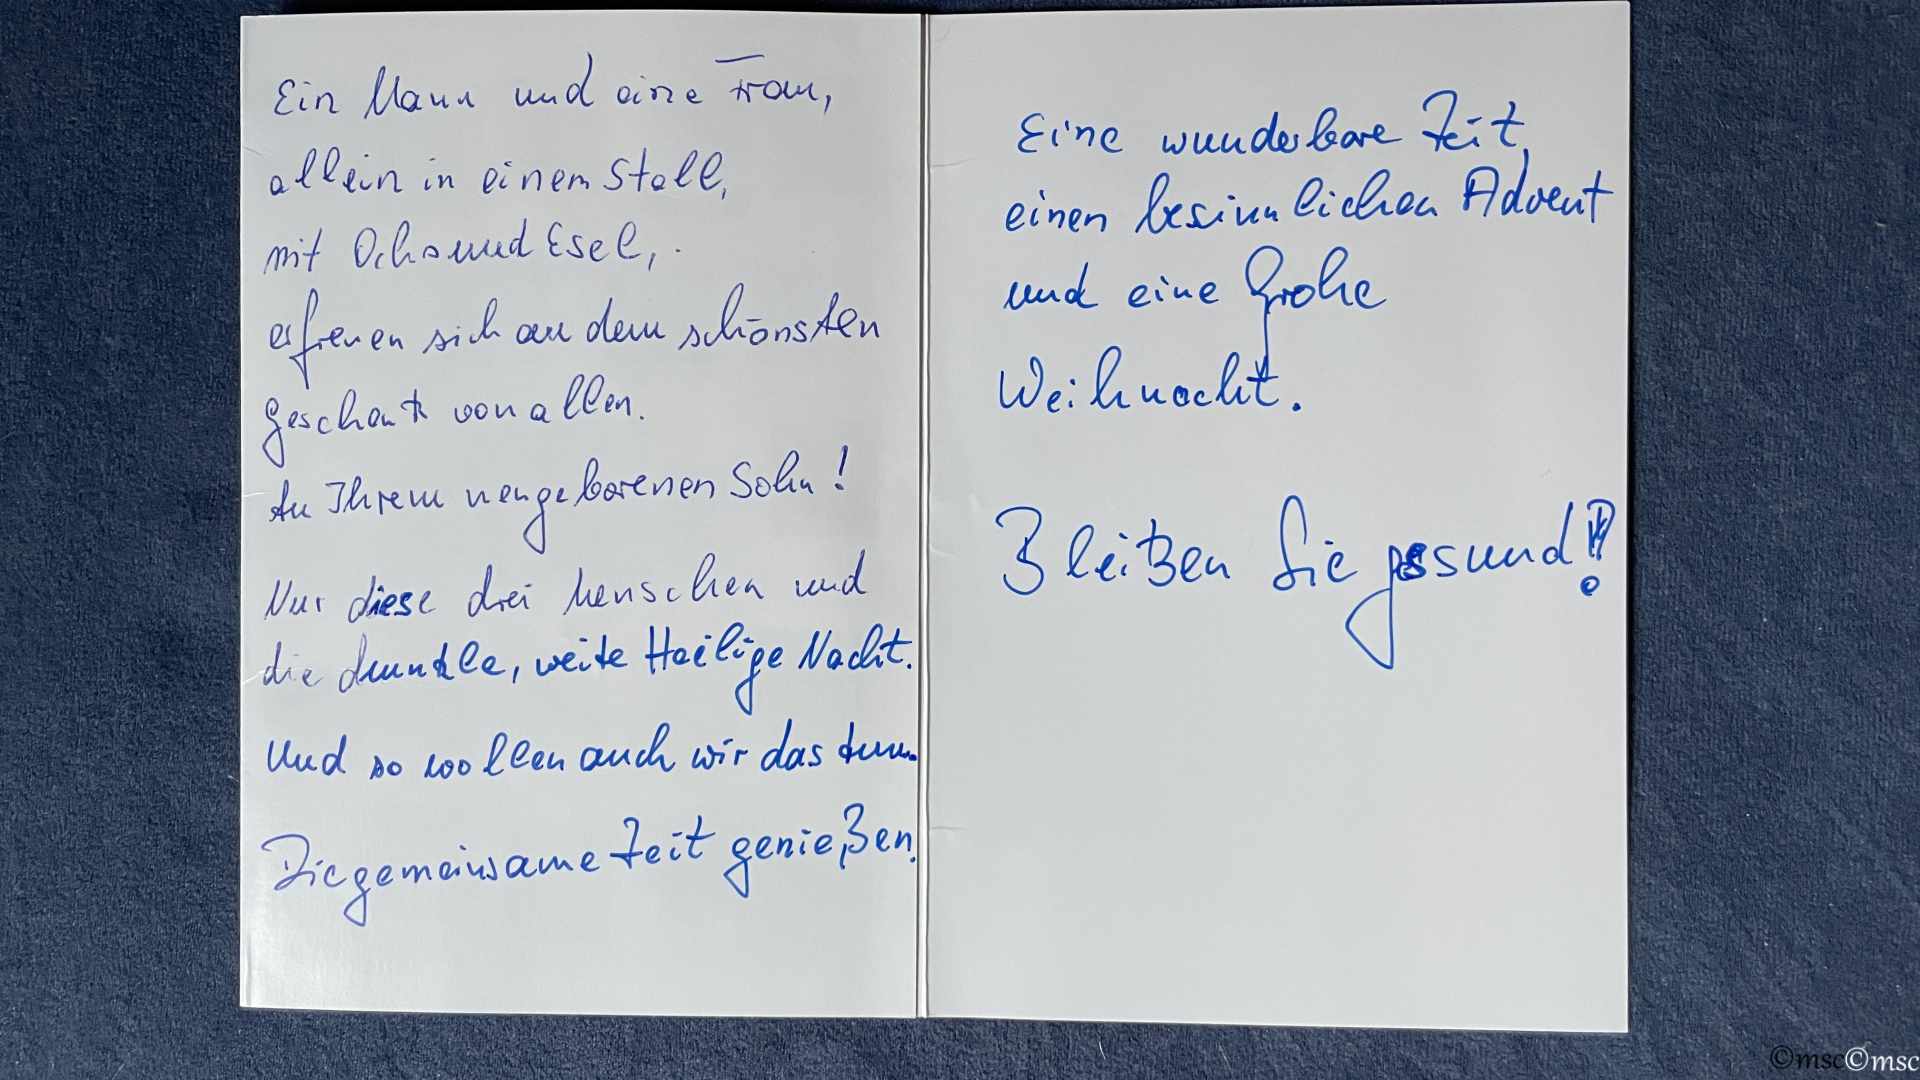 Ein Mann und eine Frau,
allein in einem Stall,
mit Ochs und Esel,
erfreuen sich an dem schönsten
Geschenk von allen.
An Ihrem neugeborenen Sohn!
Nur diese drei Menschen und
die dunkle, weite Heilige Nacht.
Und so wollen auch wir das tun.
Die gemeinsame Zeit genießen.
Eine wunderbare Zeit,
einen besinnlichen Advent
und eine Frohe
Weihnacht.
Bleiben Sie gesund!
©msc©msc